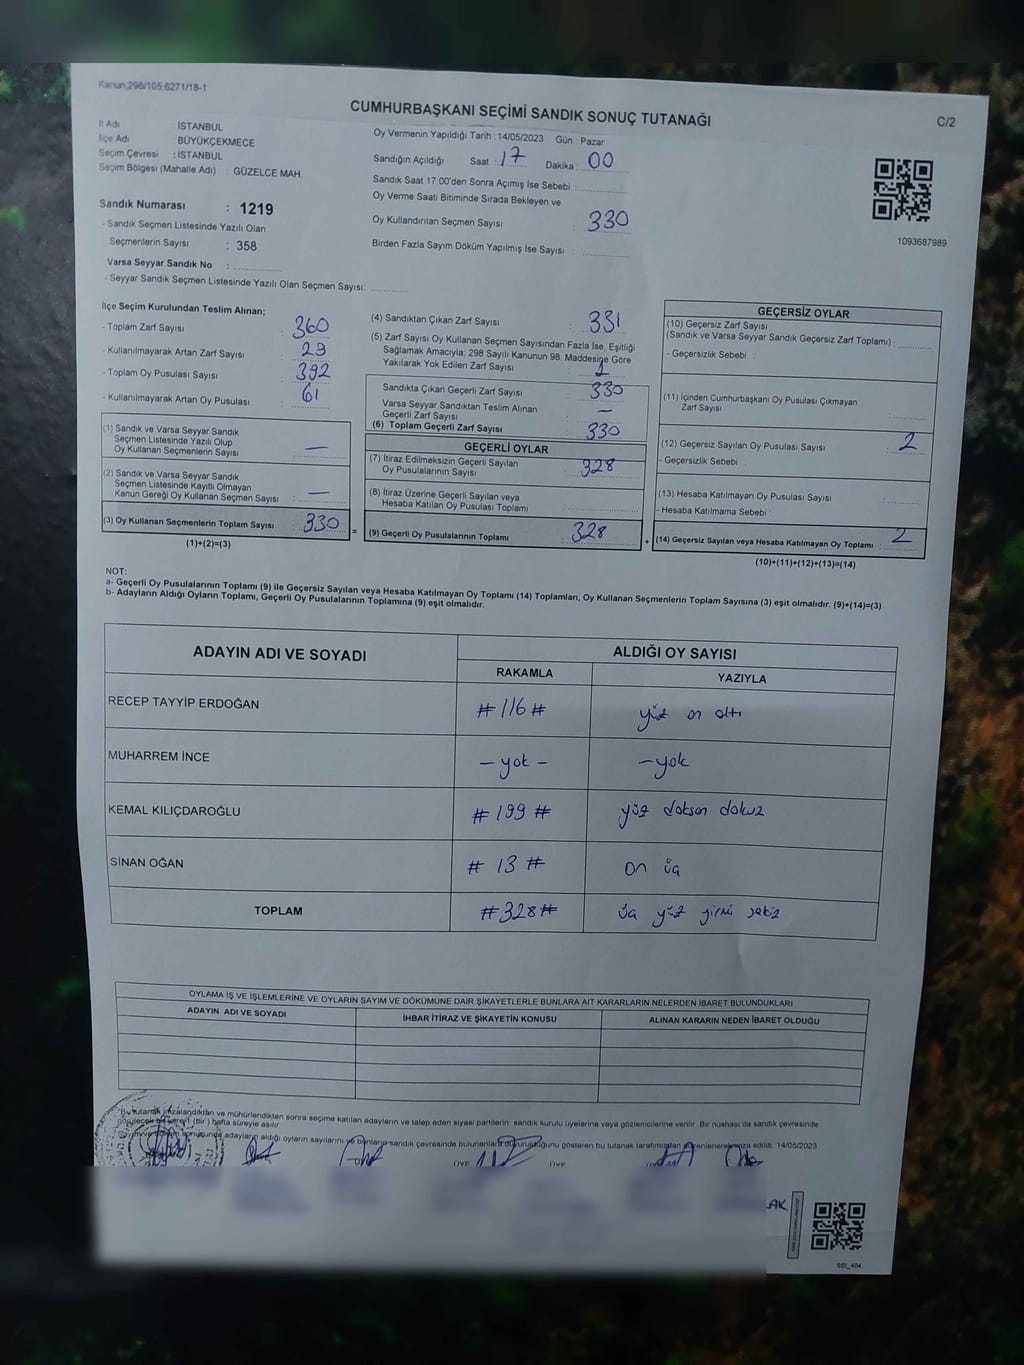 Kanun:298/105;6271/18-1
CUMHURBAŞKANI SEÇİMİ SANDIK SONUÇ TUTANAĞI
C/2
İl Adı İSTANBUL
İlçe Adı BÜYÜKÇEKMECE
Seçim Çevresi : İSTANBUL
Seçim Bölgesi (Mahalle Adı) : GÜZELCE MAH.
Sandık Numarası : 1219
- Sandık Seçmen Listesinde Yazılı Olan
Seçmenlerin Sayısı : 358
Varsa Seyyar Sandık No :
- Seyyar Sandık Seçmen Listesinde Yazılı Olan Seçmen Sayısı:
Oy Vermenin Yapıldığı Tarih : 14/05/2023 Gün : Pazar
Sandığın Açıldığı Saat : 17 Dakika : 00
Sandık Saat 17:00'den Sonra Açımış İse Sebebi :
Oy Verme Saati Bitiminde Sırada Bekleyen ve
Oy Kullandırılan Seçmen Sayısı : 330
Birden Fazla Sayım Döküm Yapılmış İse Sayısı :
1093687989
İlçe Seçim Kurulundan Teslim Alınan;
- Toplam Zarf Sayısı : 360
- Kullanılmayarak Artan Zarf Sayısı : 29
- Toplam Oy Pusulası Sayısı : 392
- Kullanılmayarak Artan Oy Pusulası : 61
(1) Sandık ve Varsa Seyyar Sandık
Seçmen Listesinde Yazılı Olup
Oy Kullanan Seçmenlerin Sayısı : —
(2) Sandık ve Varsa Seyyar Sandık
Seçmen Listesinde Kayıtlı Olmayan
Kanun Gereği Oy Kullanan Seçmen Sayısı : —
(3) Oy Kullanan Seçmenlerin Toplam Sayısı : 330
(1)+(2)=(3)
=
(4) Sandıktan Çıkan Zarf Sayısı : 331
(5) Zarf Sayısı Oy Kullanan Seçmen Sayısından Fazla İse, Eşitliği
Sağlamak Amacıyla; 298 Sayılı Kanunun 98. Maddesine Göre
Yakılarak Yok Edilen Zarf Sayısı : 1
Sandıkta Çıkan Geçerli Zarf Sayısı : 330
Varsa Seyyar Sandıktan Teslim Alınan
Geçerli Zarf Sayısı : —
(6) Toplam Geçerli Zarf Sayısı : 330
GEÇERLİ OYLAR
(7) İtiraz Edilmeksizin Geçerli Sayılan
Oy Pusulalarının Sayısı : 328
(8) İtiraz Üzerine Geçerli Sayılan veya
Hesaba Katılan Oy Pusulası Toplamı :
(9) Geçerli Oy Pusulalarının Toplamı : 328
+
GEÇERSİZ OYLAR
(10) Geçersiz Zarf Sayısı
(Sandık ve Varsa Seyyar Sandık Geçersiz Zarf Toplamı) :
- Geçersizlik Sebebi :
(11) İçinden Cumhurbaşkanı Oy Pusulası Çıkmayan
Zarf Sayısı :
(12) Geçersiz Sayılan Oy Pusulası Sayısı : 2
- Geçersizlik Sebebi :
(13) Hesaba Katılmayan Oy Pusulası Sayısı :
- Hesaba Katılmama Sebebi :
(14) Geçersiz Sayılan veya Hesaba Katılmayan Oy Toplamı : 2
(10)+(11)+(12)+(13)=(14)
NOT:
a- Geçerli Oy Pusulalarının Toplamı (9) ile Geçersiz Sayılan veya Hesaba Katılmayan Oy Toplamı (14) Toplamları, Oy Kullanan Seçmenlerin Toplam Sayısına (3) eşit olmalıdır. (9)+(14)=(3)
b- Adayların Aldığı Oyların Toplamı, Geçerli Oy Pusulalarının Toplamına (9) eşit olmalıdır.
ADAYIN ADI VE SOYADI ALDIĞI OY SAYISI
RAKAMLA YAZIYLA
RECEP TAYYİP ERDOĞAN # 116 # yüz on altı
MUHARREM İNCE – yok – – yok
KEMAL KILIÇDAROĞLU # 199 # yüz doksan dokuz
SİNAN OĞAN # 13 # on üç
TOPLAM # 328 # üç yüz yirmi sekiz
OYLAMA İŞ VE İŞLEMLERİNE VE OYLARIN SAYIM VE DÖKÜMÜNE DAİR ŞİKAYETLERLE BUNLARA AİT KARARLARIN NELERDEN İBARET BULUNDUKLARI
ADAYIN ADI VE SOYADI İHBAR İTİRAZ VE ŞİKAYETİN KONUSU ALINAN KARARIN NEDEN İBARET OLDUĞU
Bu tutanak imzalandıktan ve mühürlendikten sonra seçime katılan adayların ve talep eden siyasi partilerin sandık kurulu üyelerine veya gözlemcilerine verilir. Bir nüshası da sandık çevresinde
(bir) hafta süreyle asılır
adayların aldığı oyların sayılarını ve bunların sandık çevresinde gösteren bu tutanak tarafımızdan edildi. 14/05/2023
ÜYE ÜYE
AK
SSI_404